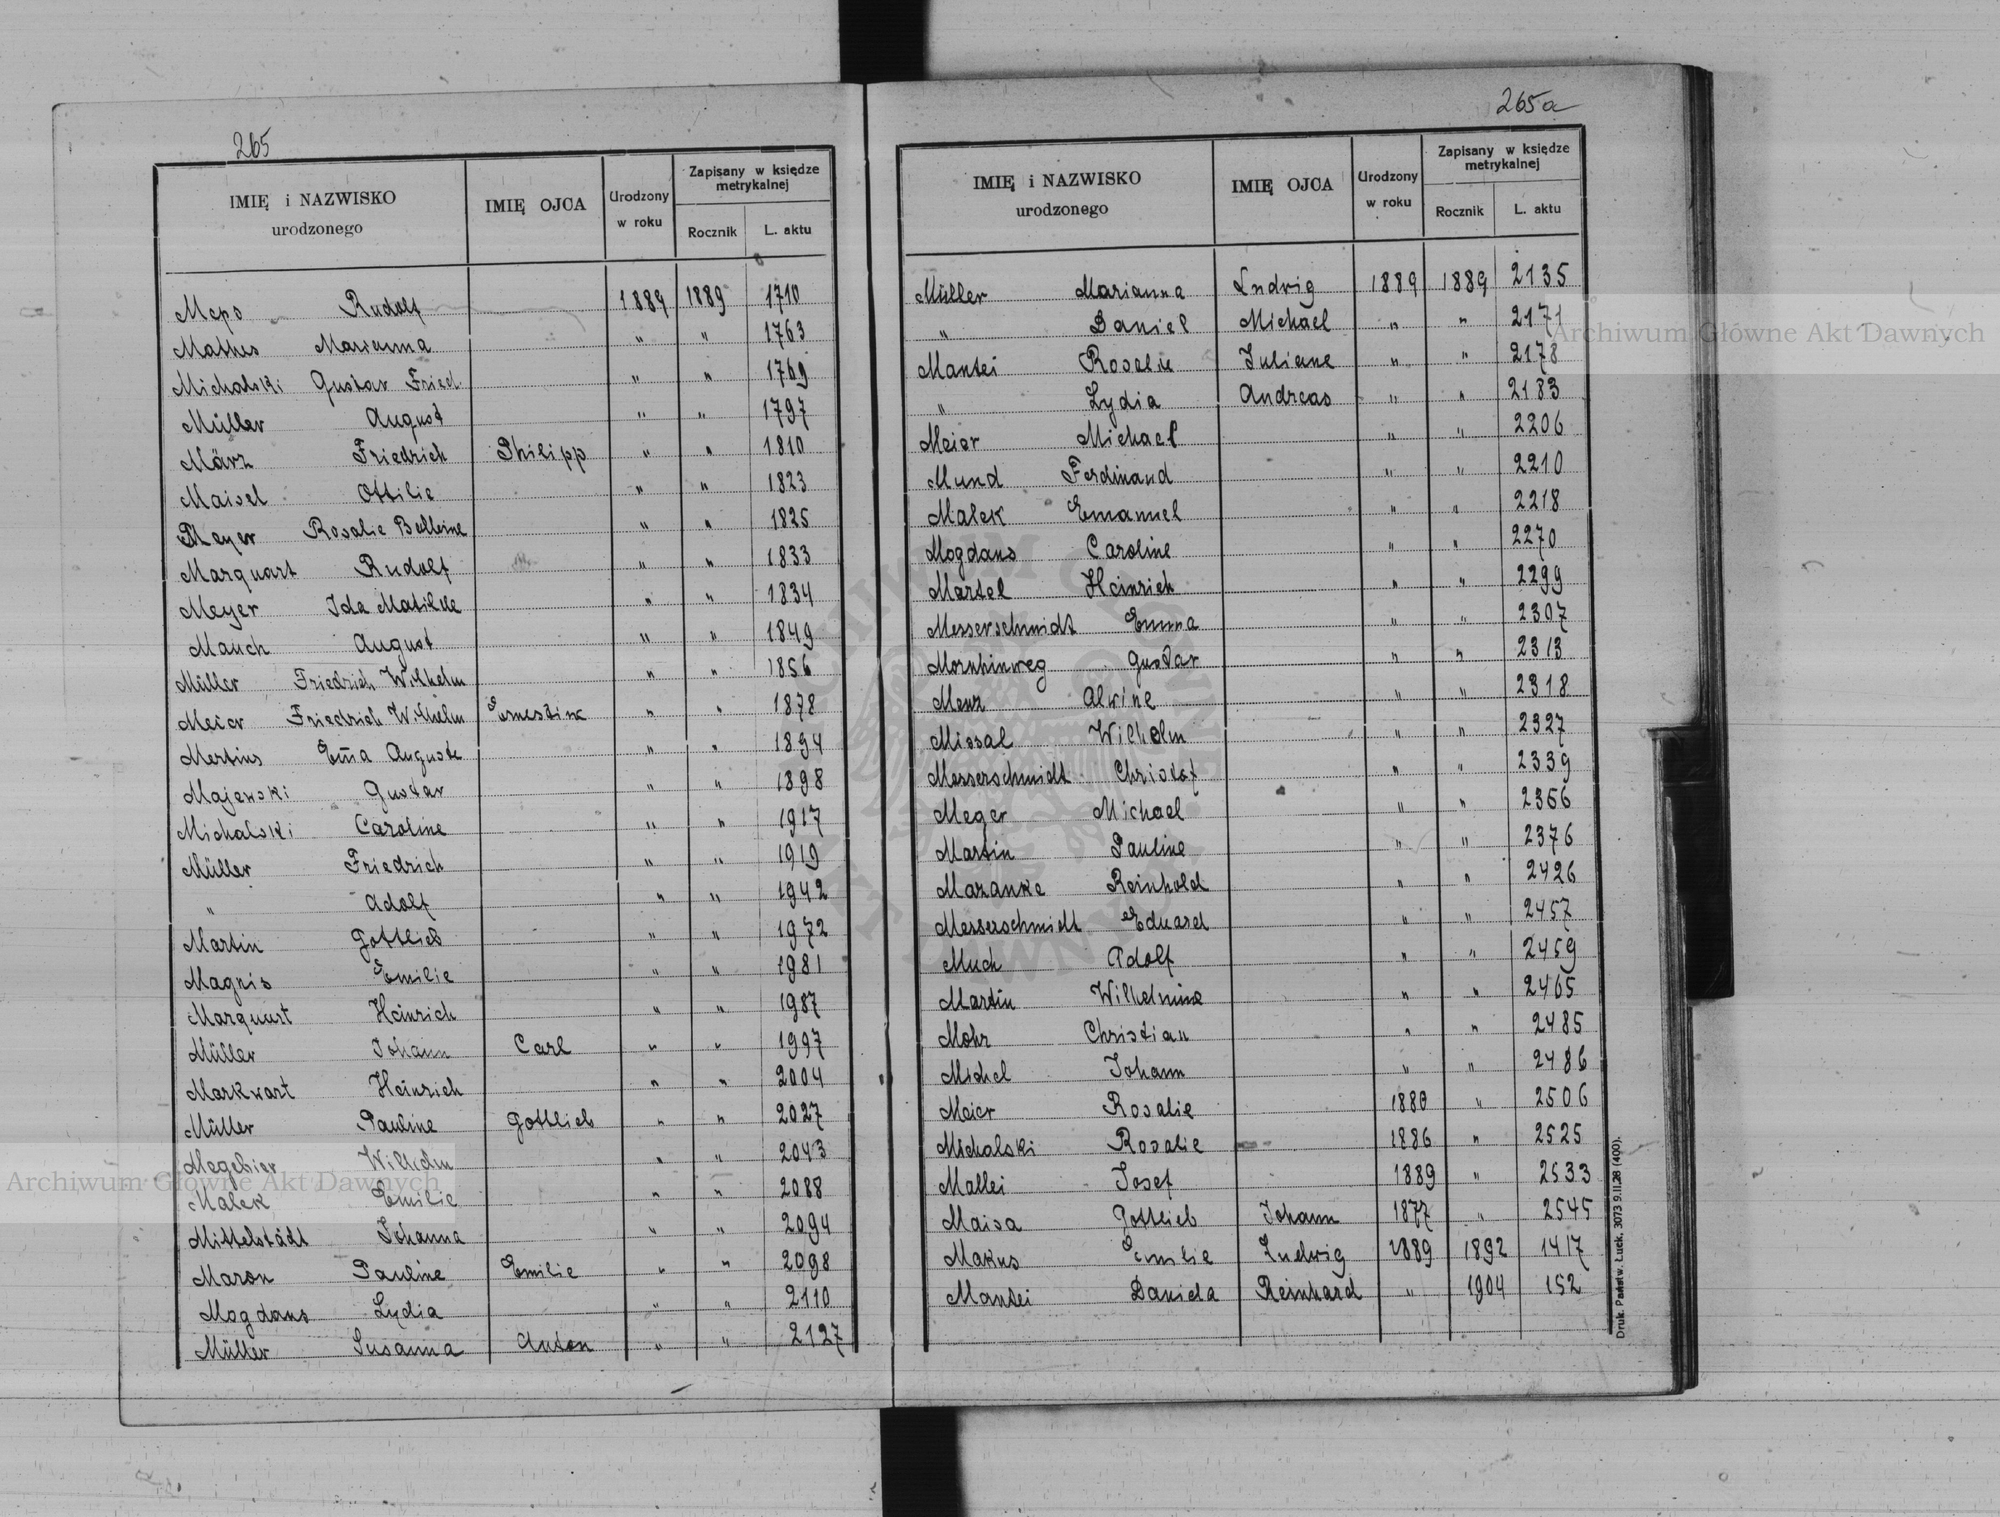 265
IMIĘ i NAZWISKO urodzonego IMIĘ OJCA Urodzony w roku Zapisany w księdze metrykalnej Rocznik L. aktu
Meps Rudolf 1889 1889 1710
Mathes Marianna " " 1763
Michalski Gustav Fried " " 1769
Müller August " " 1797
März Friedrich Philipp " " 1810
Maisel Ottilie " " 1823
Meyer Rosalie Balbine " " 1825
Marquart Rudolf " " 1833
Meyer Ida Matilde " " 1834
Mauch August " " 1849
Müller Friedrich Wilhelm " " 1856
Meier Friedrich Wilhelm Ernestine " " 1878
Mertins Em̄a Auguste " " 1894
Majewski Gustav " " 1898
Michalski Caroline " " 1917
Müller Friedrich " " 1919
" Adolf " " 1942
Martin Gottlieb " " 1972
Magnis Emilie " " 1981
Marquart Heinrich " " 1987
Müller Johann Carl " " 1997
Markwart Heinrich " " 2004
Müller Pauline Gottlieb " " 2027
Megebier Wilhelm " " 2043
Malek Emilie " " 2088
Mittelstädt Johanna " " 2094
Maron Pauline Emilie " " 2098
Mogdans Lydia " " 2110
Müller Susanna Anton " " 2127
265a
IMIĘ i NAZWISKO urodzonego IMIĘ OJCA Urodzony w roku Zapisany w księdze metrykalnej Rocznik L. aktu
Müller Marianna Ludwig 1889 1889 2135
" Daniel Michael " " 2171
Mantei Rosalie Juliane " " 2178
" Lydia Andreas " " 2183
Meier Michael " " 2206
Mund Ferdinand " " 2210
Malek Emanuel " " 2218
Mogdans Caroline " " 2270
Martel Heinrich " " 2299
Messerschmidt Emma " " 2307
Mornhinweg Gustav " " 2313
Menz Alwine " " 2318
Missal Wilhelm " " 2327
Messerschmidt Christof " " 2339
Meger Michael " " 2366
Martin Pauline " " 2376
Mazanke Reinhold " " 2426
Messerschmidt Eduard " " 2457
Much Adolf " " 2459
Martin Wilhelmine " " 2465
Mohr Christian " " 2485
Michel Johann " " 2486
Meier Rosalie 1880 " 2506
Michalski Rosalie 1886 " 2525
Mallei Josef 1889 " 2533
Maisa Gottlieb Johann 1877 " 2545
Makus Emilie Ludwig 1889 1892 1417
Mantei Daniela Reinhard " 1904 152
Druk. Państw. Łuck. 3073 9.II.28 (400).
Archiwum Główne Akt Dawnych
Archiwum Główne Akt Dawnych
ARCHIWUM GŁÓWNE AKT DAWNYCH